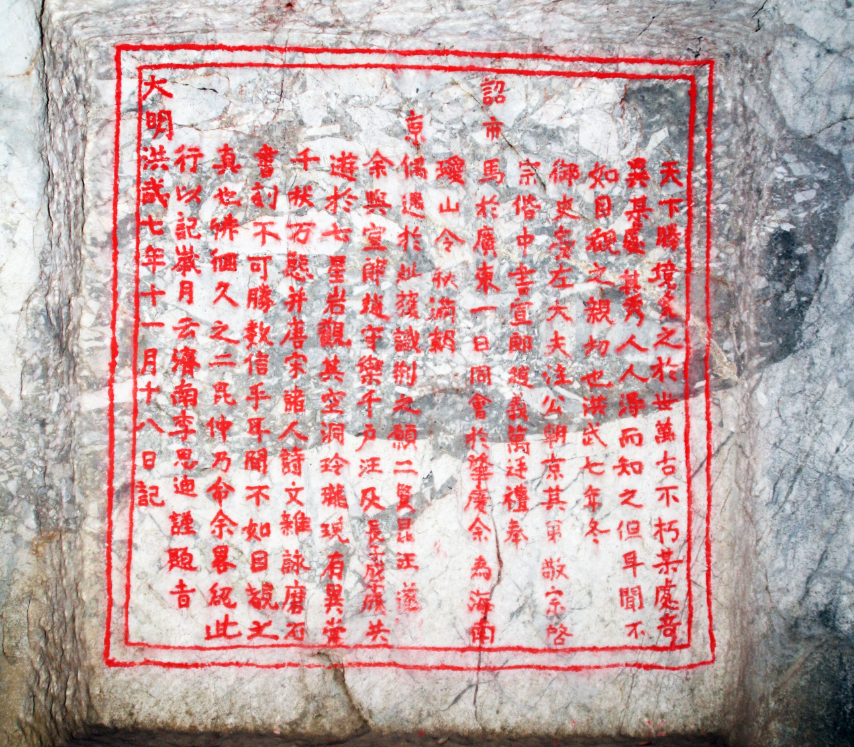 天下勝境見之於世萬古不朽某處奇
異某處其秀人人得而知之但耳聞不
如目覩之親切也洪武七年冬
御史臺左大夫汪公朝京其弟敬宗啓
宗偕中書宣郎趙義萬廷禮奉
詔市馬於廣東一日同會於肇慶余為海南
瓊山令秋滿朝
京偶遇於此獲識荆之願二賢昆汪遂
余與宣郎趙守禦千戶汪及長子成廣共
遊於七星岩觀其空洞玲瓏現有異常
千狀万態并唐宋諸人詩文雜詠磨石
書刻不可勝数信乎耳聞不如目覩之
真也徘徊久之二昆仲乃命余畧紀此
行以記歲月云濟南李思迪謹題音
大明洪武七年十一月十八日記